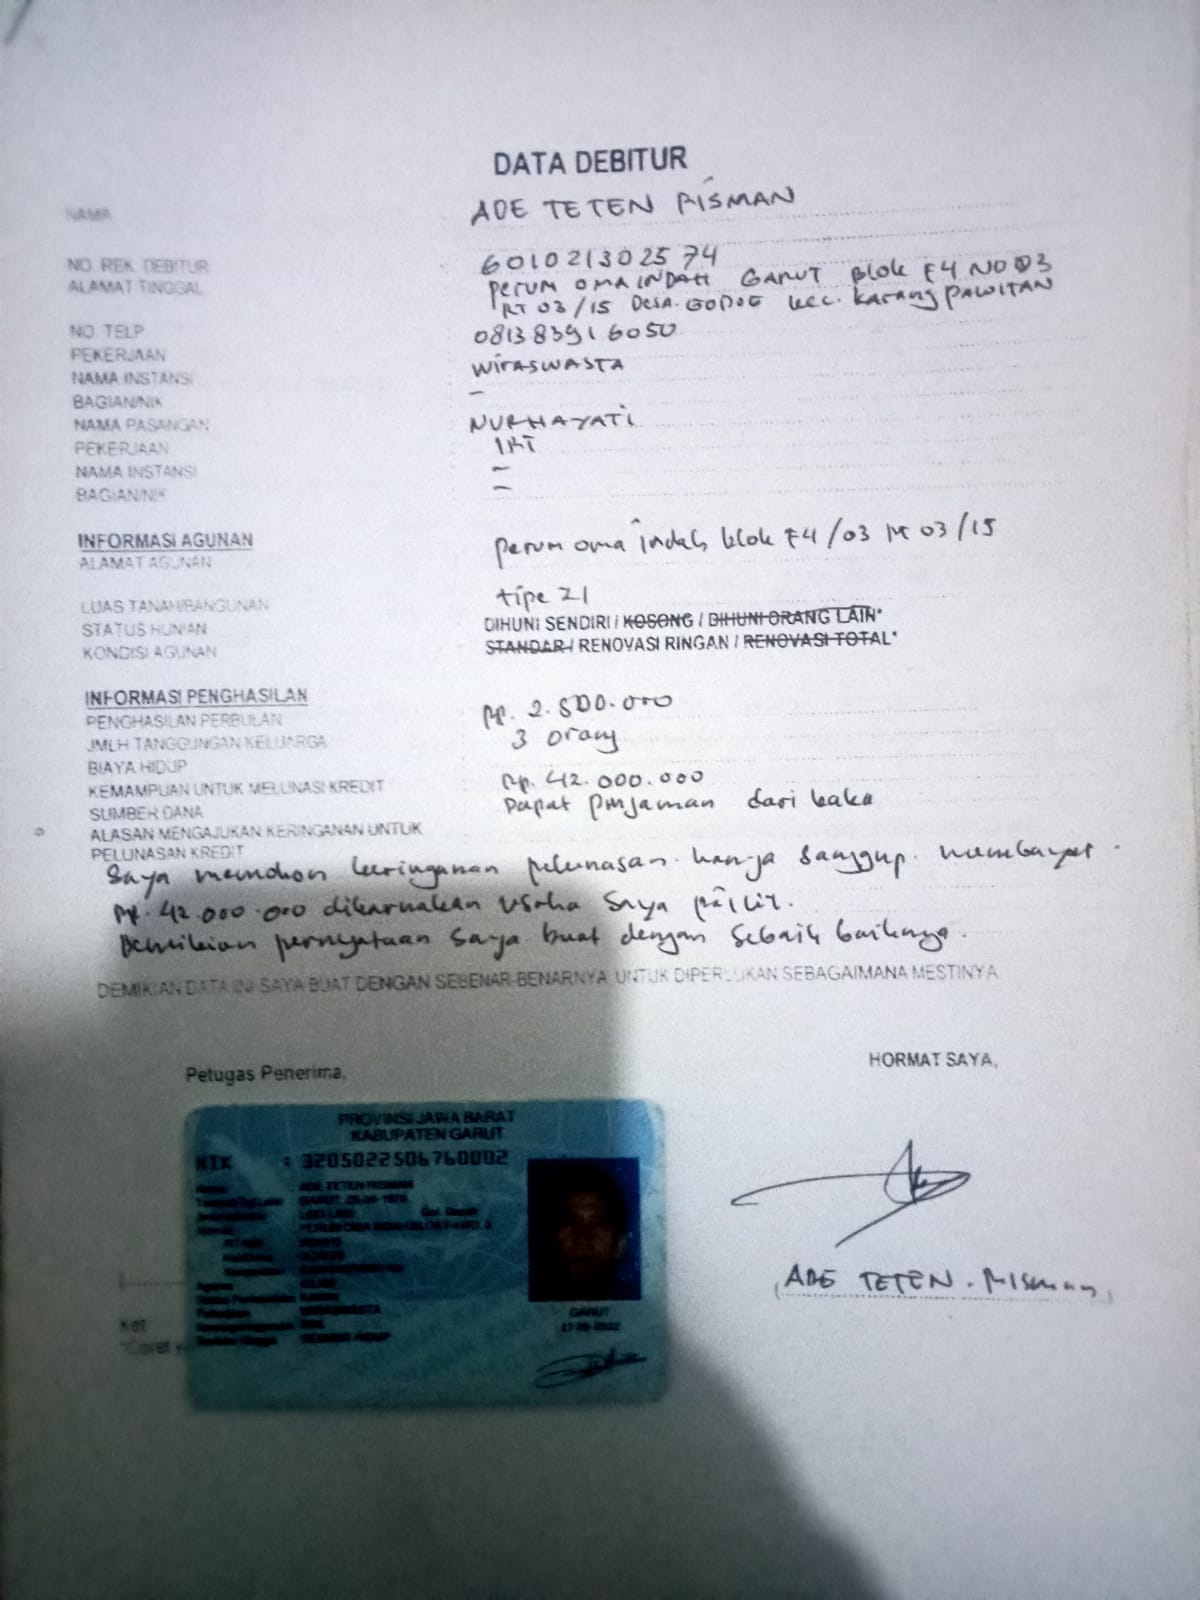 DATA DEBITUR
NAMA ADE TETEN RISMAN
NO. REK DEBITUR 6010213025 74
ALAMAT TINGGAL PERUM OMA INDAH GARUT BLOK F4 NO 03
RT 03/15 DESA. GODOG KEC. KARANGPAWITAN
NO. TELP 081383916050
PEKERJAAN WIRASWASTA
NAMA INSTANSI -
BAGIAN/NIK
NAMA PASANGAN NURHAYATI
PEKERJAAN IRT
NAMA INSTANSI -
BAGIAN/NIK -
INFORMASI AGUNAN
ALAMAT AGUNAN perum oma indah blok F4/03 RT 03/15
LUAS TANAH/BANGUNAN tipe 21
STATUS HUNIAN DIHUNI SENDIRI / KOSONG / DIHUNI ORANG LAIN*
KONDISI AGUNAN STANDAR / RENOVASI RINGAN / RENOVASI TOTAL*
INFORMASI PENGHASILAN
PENGHASILAN PERBULAN Rp. 2.800.000
JMLH TANGGUNGAN KELUARGA 3 orang
BIAYA HIDUP
KEMAMPUAN UNTUK MELUNASI KREDIT Rp. 42.000.000
SUMBER DANA Dapat pinjaman dari kaka
ALASAN MENGAJUKAN KERINGANAN UNTUK
PELUNASAN KREDIT
Saya memohon keringanan pelunasan. hanya sanggup. membayar.
Rp. 42.000.000 dikarnakan usaha saya pailit.
Demikian pernyataan saya buat dengan sebaik baiknya.
DEMIKIAN DATA INI SAYA BUAT DENGAN SEBENAR-BENARNYA UNTUK DIPERLUKAN SEBAGAIMANA MESTINYA
HORMAT SAYA,
Petugas Penerima,
PROVINSI JAWA BARAT
KABUPATEN GARUT
NIK : 3205022506760002
ADE TETEN RISMAN
LAKI-LAKI Gol. Darah
WIRASWASTA
SEUMUR HIDUP
GARUT
ADE TETEN. Risman
Ket
*Coret